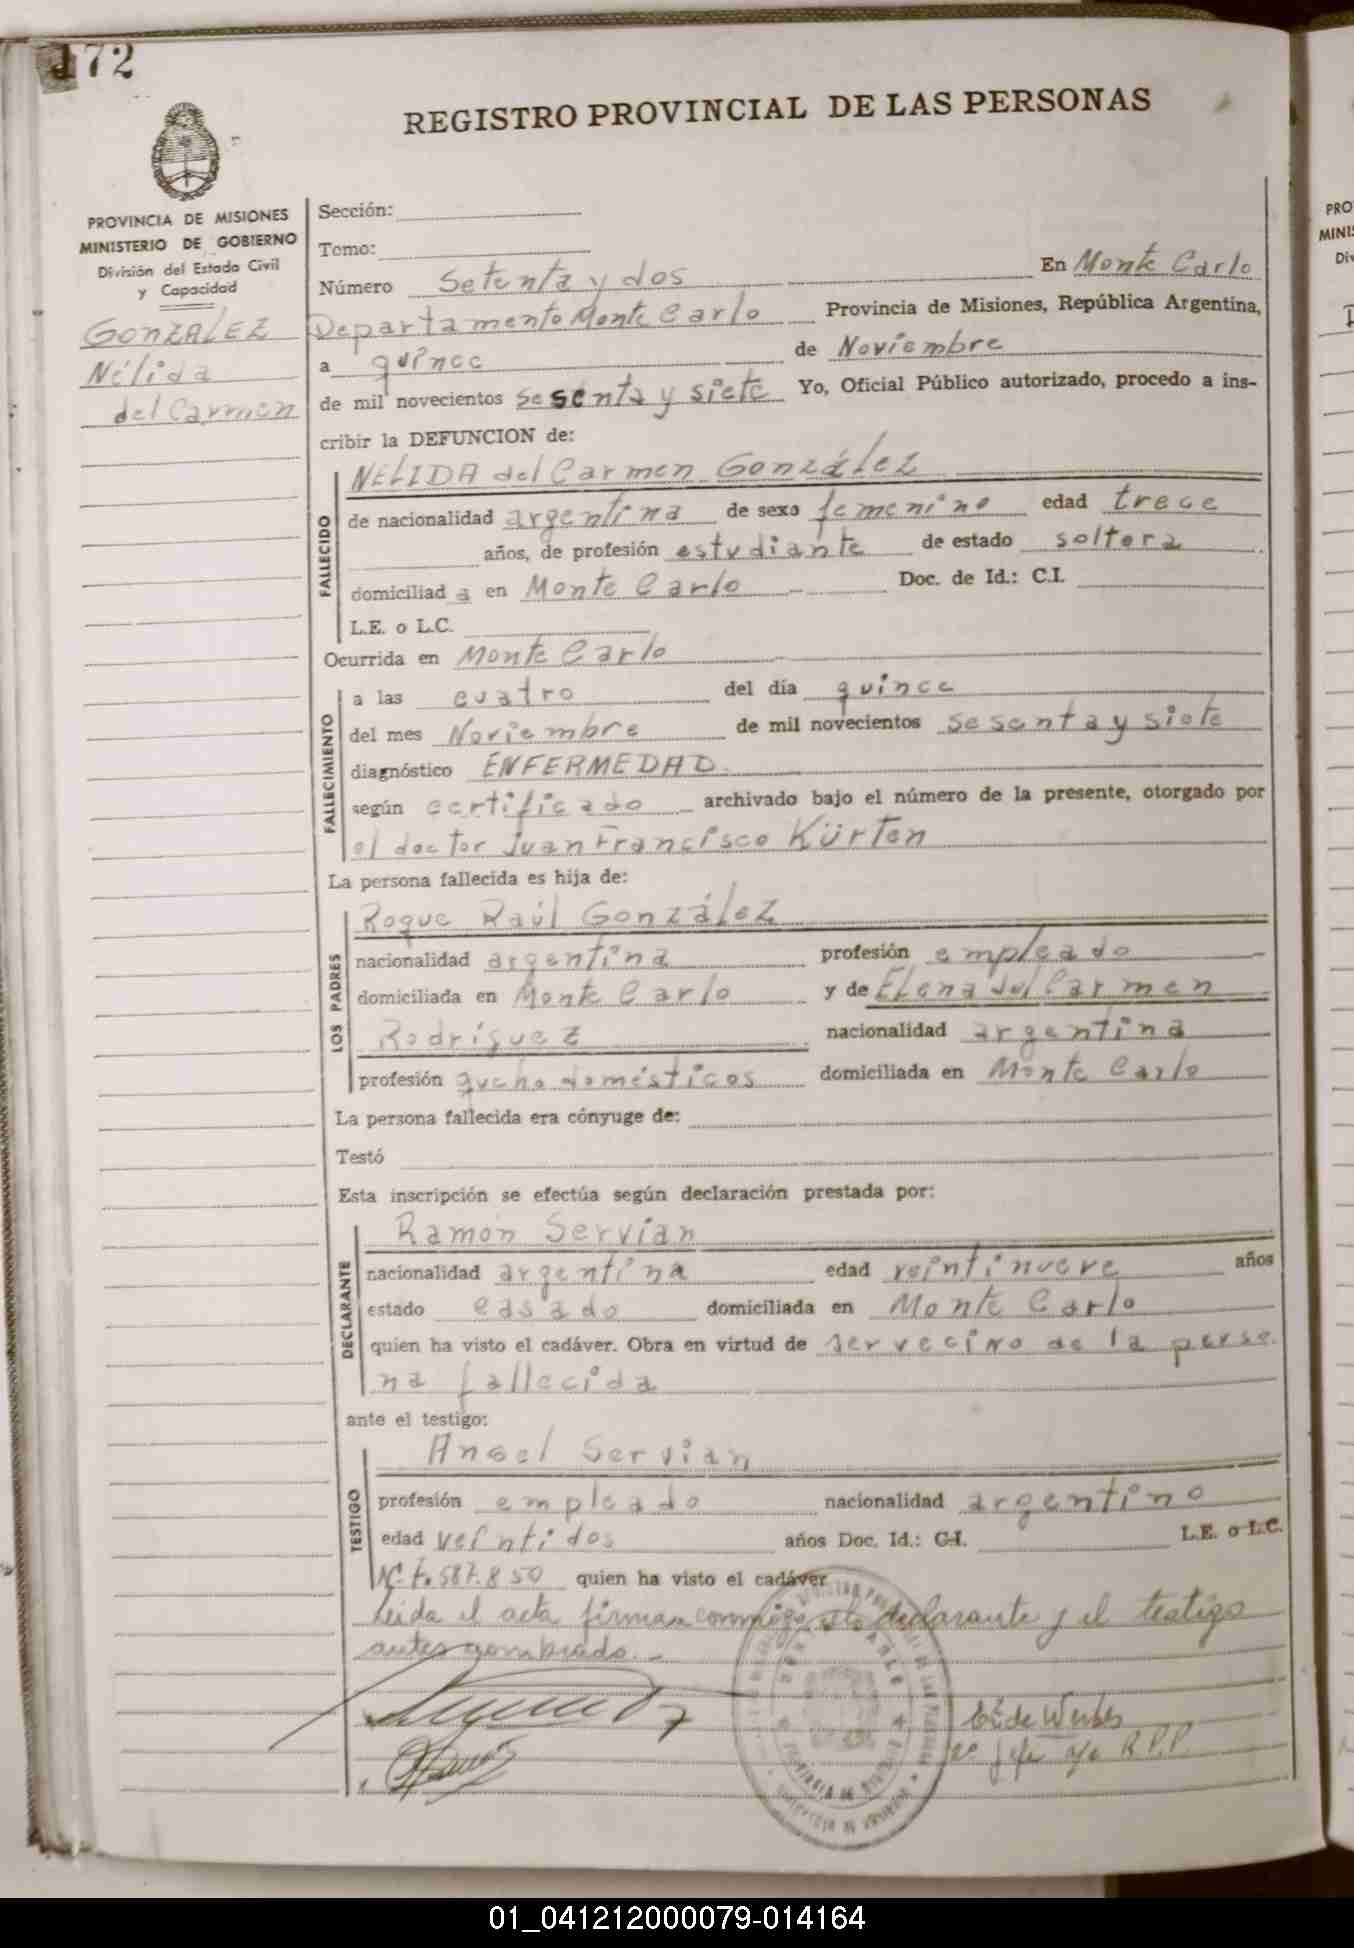 172
REGISTRO PROVINCIAL DE LAS PERSONAS
PROVINCIA DE MISIONES
MINISTERIO DE GOBIERNO
División del Estado Civil
y Capacidad
GONZALEZ
Nélida
del Carmen
Sección:
Tomo:
Número Setenta y dos En Monte Carlo
Departamento Monte Carlo Provincia de Misiones, República Argentina,
a quince de Noviembre
de mil novecientos sesenta y siete Yo, Oficial Público autorizado, procedo a ins-
cribir la DEFUNCION de:
FALLECIDO
NELIDA del Carmen González
de nacionalidad argentina de sexo femenino edad trece
años, de profesión estudiante de estado soltera
domiciliad a en Monte Carlo Doc. de Id.: C.I.
L.E. o L.C.
Ocurrida en Monte Carlo
FALLECIMIENTO
a las cuatro del día quince
del mes Noviembre de mil novecientos sesenta y siete
diagnóstico ENFERMEDAD
según certificado archivado bajo el número de la presente, otorgado por
el doctor Juan Francisco Kürten
La persona fallecida es hija de:
LOS PADRES
Roque Raúl González
nacionalidad argentina profesión empleado
domiciliada en Monte Carlo y de Elena del Carmen
Rodríguez nacionalidad argentina
profesión queha domésticos domiciliada en Monte Carlo
La persona fallecida era cónyuge de:
Testó
Esta inscripción se efectúa según declaración prestada por:
DECLARANTE
Ramón Servian
nacionalidad argentina edad veintinueve años
estado casado domiciliada en Monte Carlo
quien ha visto el cadáver. Obra en virtud de ser vecino de la perso
na fallecida
ante el testigo:
TESTIGO
Angel Servian
profesión empleado nacionalidad argentino
edad veintidos años Doc. Id.: C.I. L.E. o L.C.
Nº 7.587.850 quien ha visto el cadáver
Leida el acta firman conmigo el declarante y el testigo
antes nombrado.-
PROVINCIA DE MISIONES
2º Jefe R.P.P.
01_041212000079-014164